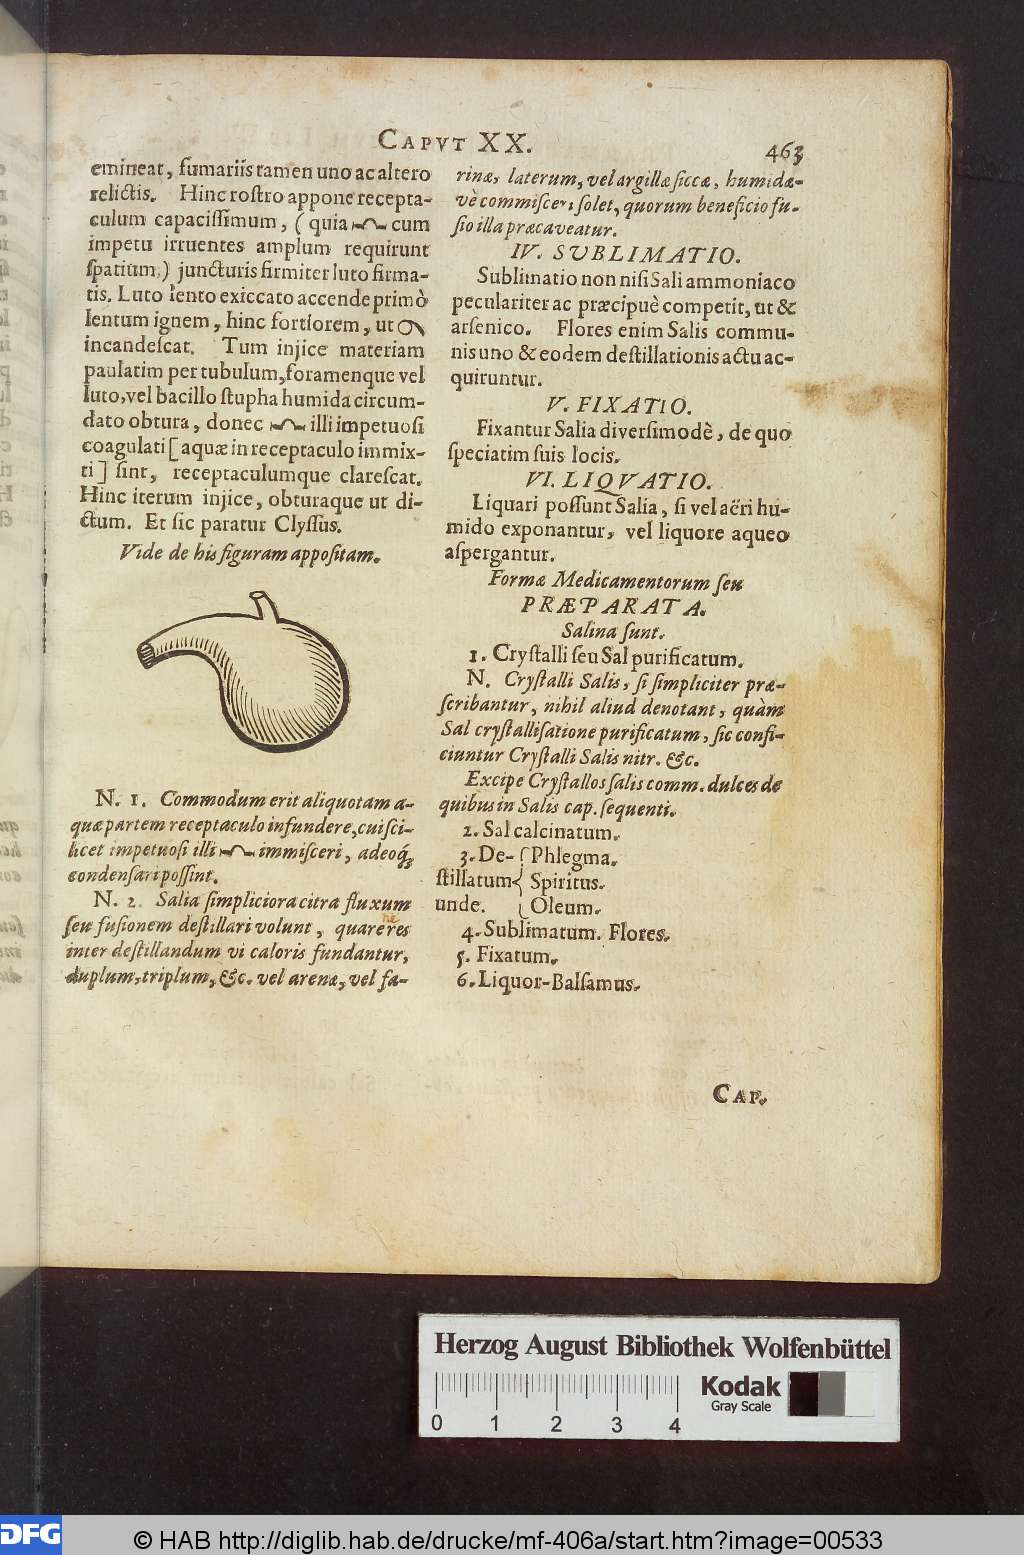 CAPVT XX. 463
emineat, fumariis tamen uno ac altero
relictis. Hinc rostro appone recepta-
culum capacissimum, (quia cum
impetu irruentes amplum requirunt
spatium,) juncturis firmiter luto firma-
tis. Luto lento exiccato accende primò
lentum ignem, hinc fortiorem, ut
incandescat. Tum injice materiam
paulatim per tubulum, foramenque vel
luto, vel bacillo stupha humida circum-
dato obtura, donec illi impetuosi
coagulati [aquæ in receptaculo immix-
ti] sint, receptaculumque clarescat.
Hinc iterum injice, obturaque ut di-
ctum. Et sic paratur Clyssus.
Vide de his figuram appositam.
N. 1. Commodum erit aliquotam a-
quæ partem receptaculo infundere, cui sci-
licet impetuosi illi immisceri, adeoq́;
condensari possint.
N. 2. Salia simpliciora citra fluxum
seu fusionem destillari volunt, quare res
inter destillandum vi caloris fundantur,
duplum, triplum, &c. vel arenæ, vel fa-
rinæ, laterum, vel argillæ siccæ, humidæ-
vè commisceri solet, quorum beneficio fu-
sio illa præcaveatur.
IV. SUBLIMATIO.
Sublimatio non nisi Sali ammoniaco
peculariter ac præcipuè competit, ut &
arsenico. Flores enim Salis commu-
nis uno & eodem destillationis actu ac-
quiruntur.
V. FIXATIO.
Fixantur Salia diversimodè, de quo
speciatim suis locis.
VI. LIQVATIO.
Liquari possunt Salia, si vel aëri hu-
mido exponantur, vel liquore aqueo
aspergantur.
Formæ Medicamentorum seu
PRÆPARATA.
Salina sunt.
1. Crystalli seu Sal purificatum.
N. Crystalli Salis, si simpliciter præ-
scribantur, nihil aliud denotant, quàm
Sal crystallisatione purificatum, sic confi-
ciuntur Crystalli Salis nitr. &c.
Excipe Crystallos salis comm. dulces de
quibus in Salis cap. sequenti.
2. Sal calcinatum.
3. De- { Phlegma.
stillatum { Spiritus.
unde. { Oleum.
4. Sublimatum. Flores.
5. Fixatum.
6. Liquor-Balsamus.
CAP.
Herzog August Bibliothek Wolfenbüttel
0 1 2 3 4
Kodak
Gray Scale
DFG
© HAB http://diglib.hab.de/drucke/mf-406a/start.htm?image=00533